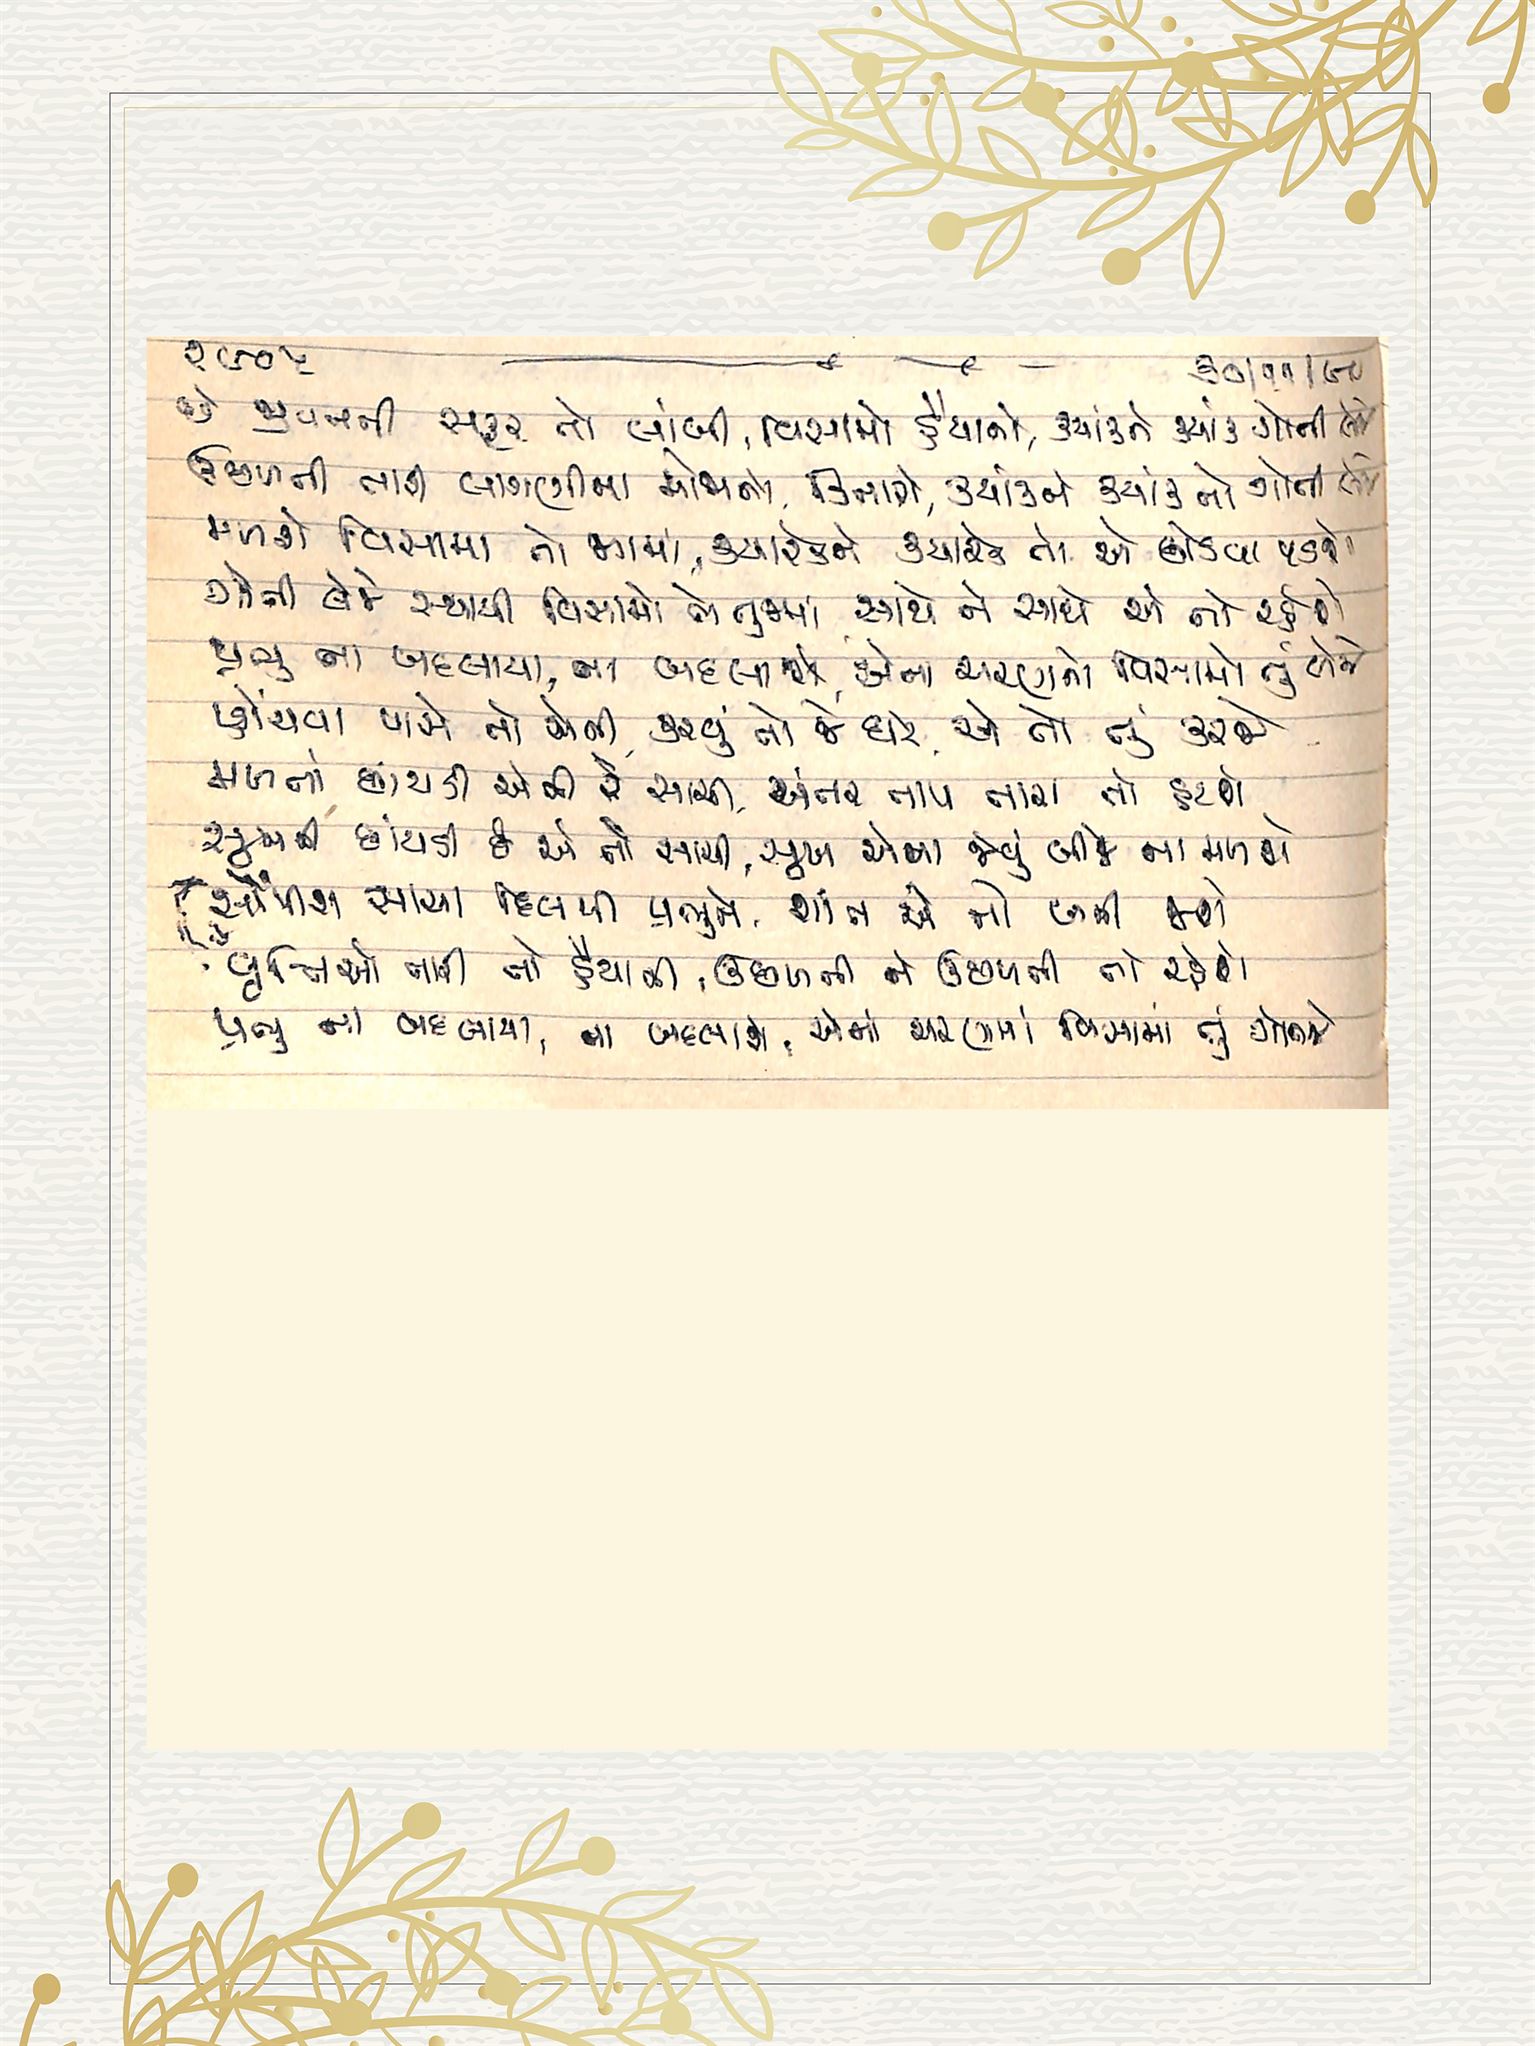 ૨૯૦૫ ૩૦/૧૧/૯૦
છે જીવનની સફર તો લાંબી, વિસામો હૈયાનો, ક્યાંકને ક્યાંક ગોતી લેજે
ઉછળતી તારી લાગણીના મોજાનો, કિનારો, ક્યાંકને ક્યાંક તો ગોતી લેજે
મળશે વિસામા તો જગમાં, ક્યારેકને ક્યારેક તો એ છોડવા પડશે
ગોતી લેજે સ્થાયી વિસામો તે તુજમાં, સાથે ને સાથે એ તો રહેશે
પ્રભુ ના બદલાયા, ના બદલાશે, એના ચરણનો વિસામો તું લેજે
પ્હોંચવા પાસે તો એની, કરવું તો જે ઘટે, એ તો તું કરજે
મળતાં છાંયડી એની રે સાચી, અંતર તાપ તારા તો હટશે
સુખની છાંયડી છે એ તો સાચી, સુખ એના જેવું બીજે ના મળશે
સોંપીશ સાચા દિલથી પ્રભુને, શાંત એ તો બની જશે
વૃત્તિઓ તારી તો હૈયાની, ઉછળતી ને ઉછળતી તો રહેશે
પ્રભુ ના બદલાયા, ના બદલાશે, એનાં ચરણમાં વિસામાં તું ગોતજે